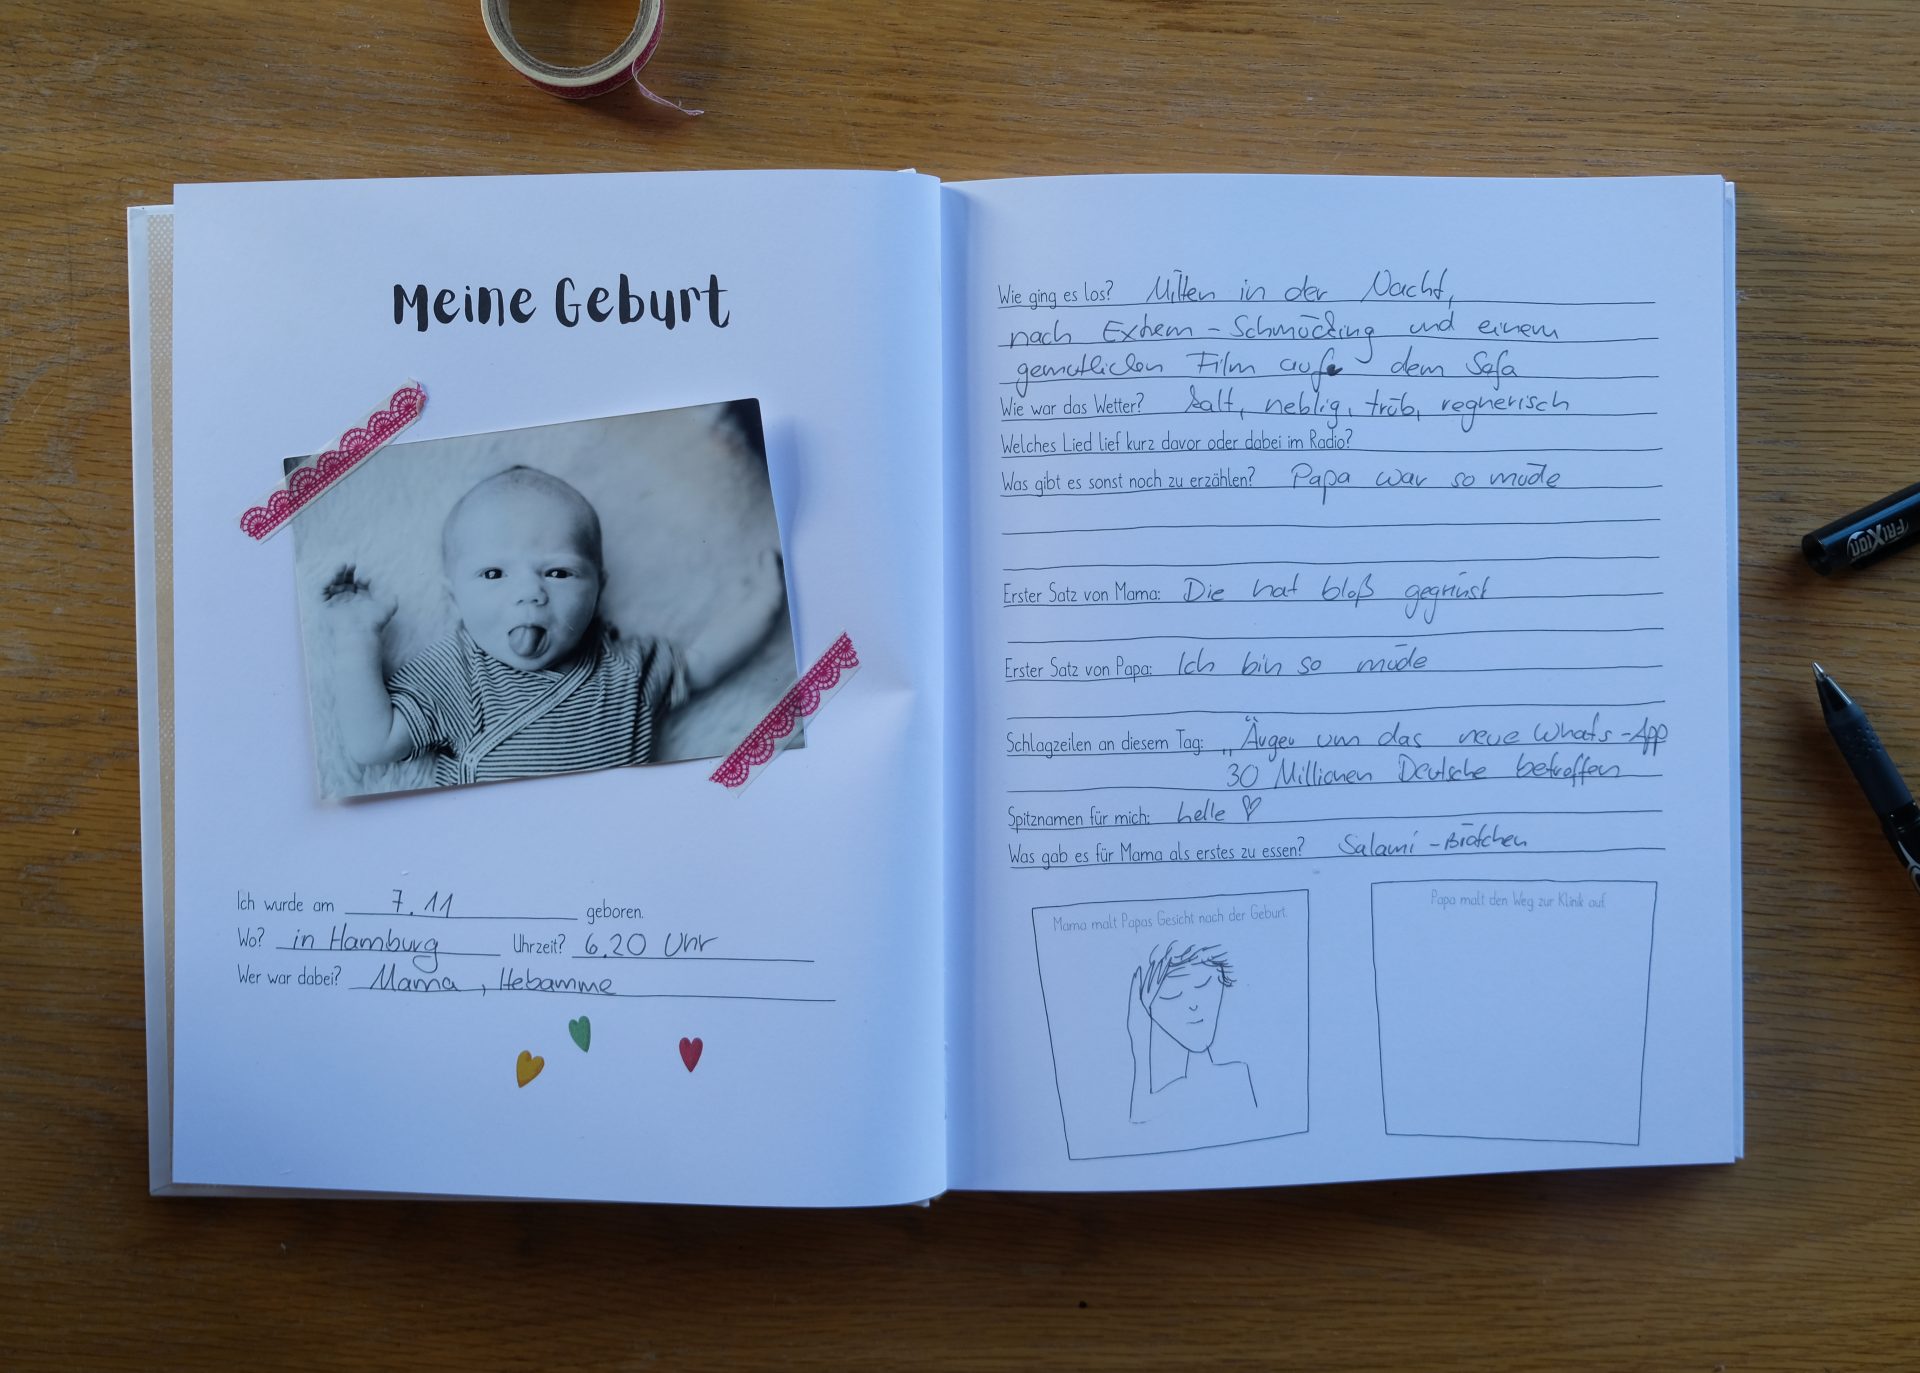 Meine Geburt
Ich wurde am 7.11 geboren.
Wo? in Hamburg Uhrzeit? 6.20 Uhr
Wer war dabei? Mama, Hebamme
Wie ging es los? Mitten in der Nacht,
nach Extrem-Schmöcking und einem
gemütlichen Film auf dem Sofa
Wie war das Wetter? kalt, neblig, trüb, regnerisch
Welches Lied lief kurz davor oder dabei im Radio?
Was gibt es sonst noch zu erzählen? Papa war so müde
Erster Satz von Mama: Die hat bloß gegrinst
Erster Satz von Papa: Ich bin so müde
Schlagzeilen an diesem Tag: „Ärger um das neue Whats-App
30 Millionen Deutsche betroffen
Spitznamen für mich: helle ♡
Was gab es für Mama als erstes zu essen? Salami-Brötchen
Mama malt Papas Gesicht nach der Geburt
Papa malt den Weg zur Klinik auf
FRIXION